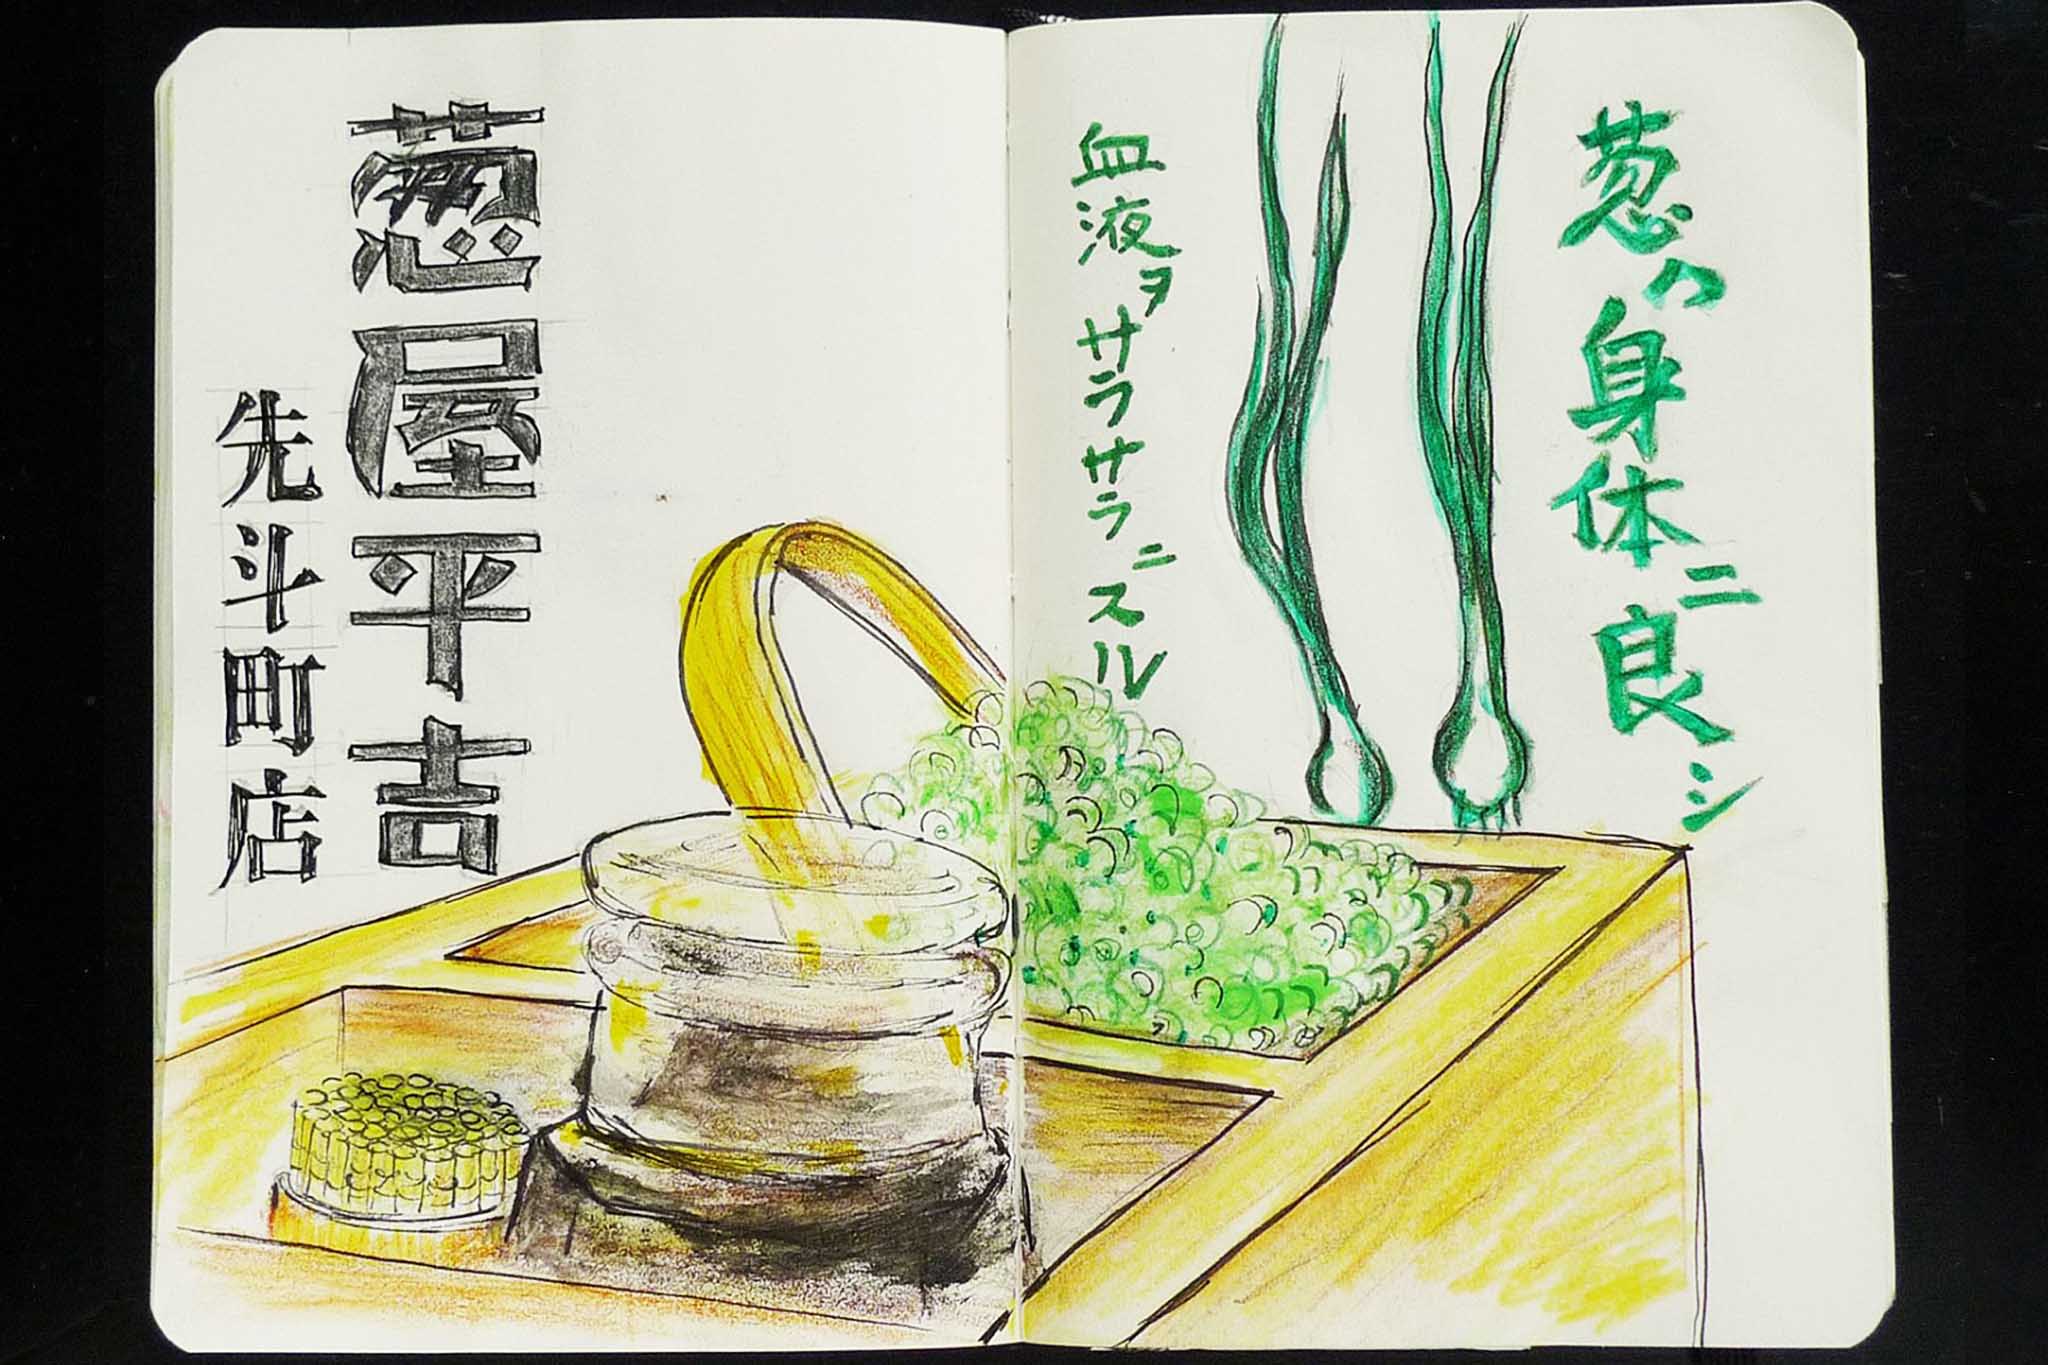 葱ハ身体ニ良シ
血液ヲサラサラニスル
葱屋平吉
先斗町店